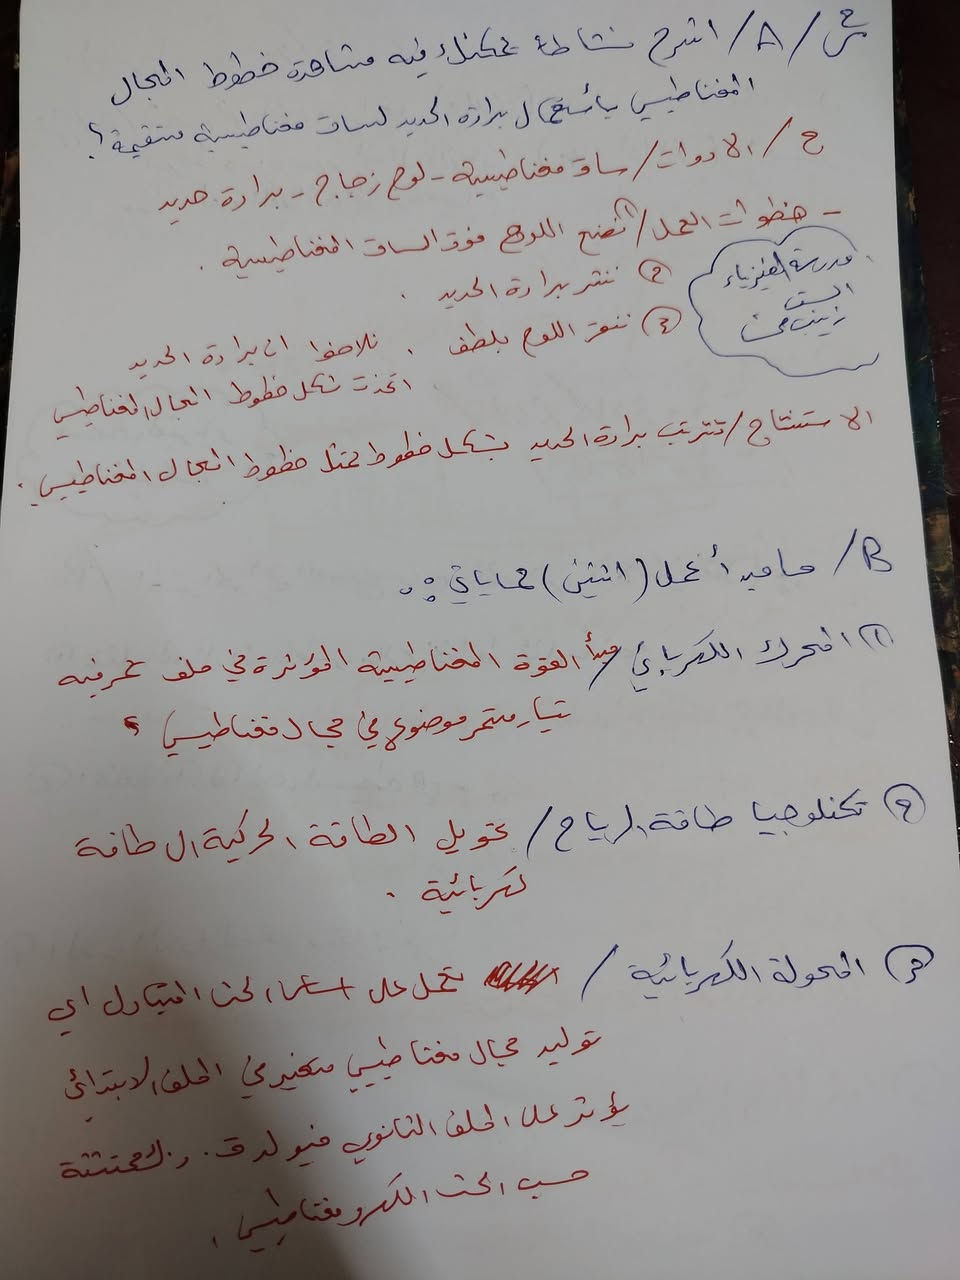 س٣/ A/ اشرح نشاط يمكنك فيه مشاهدة خطوط المجال
المغناطيسي بأستعمال برادة الحديد لساق مغناطيسية مستقيمة؟
ج/ الادوات/ ساق مغناطيسية - لوح زجاج - برادة حديد
- خطوات العمل/ ① نضع اللوح فوق الساق المغناطيسية .
② ننثر برادة الحديد .
③ ننقر اللوح بلطف . نلاحظ ان برادة الحديد
اتخذت شكل خطوط المجال المغناطيسي
مدرسة الفيزياء
الست
زينب
الاستنتاج/ تترتب برادة الحديد بشكل خطوط تمثل خطوط المجال المغناطيسي .
B/ ما مبدأ عمل (اثنين) مما يأتي :
① المحرك الكهربائي / مبدأ القوة المغناطيسية المؤثرة في ملف يمر فيه
تيار مستمر موضوع في مجال مغناطيسي ؟
② تكنلوجيا طاقة الرياح / تحويل الطاقة الحركية الى طاقة
كهربائية .
③ المحولة الكهربائية / تعمل على اساس الحث المتبادل اي
توليد مجال مغناطيسي متغير في الملف الابتدائي
يؤثر على الملف الثانوي فيولد ق . د . ك محتثة
حسب الحث الكهرومغناطيسي .